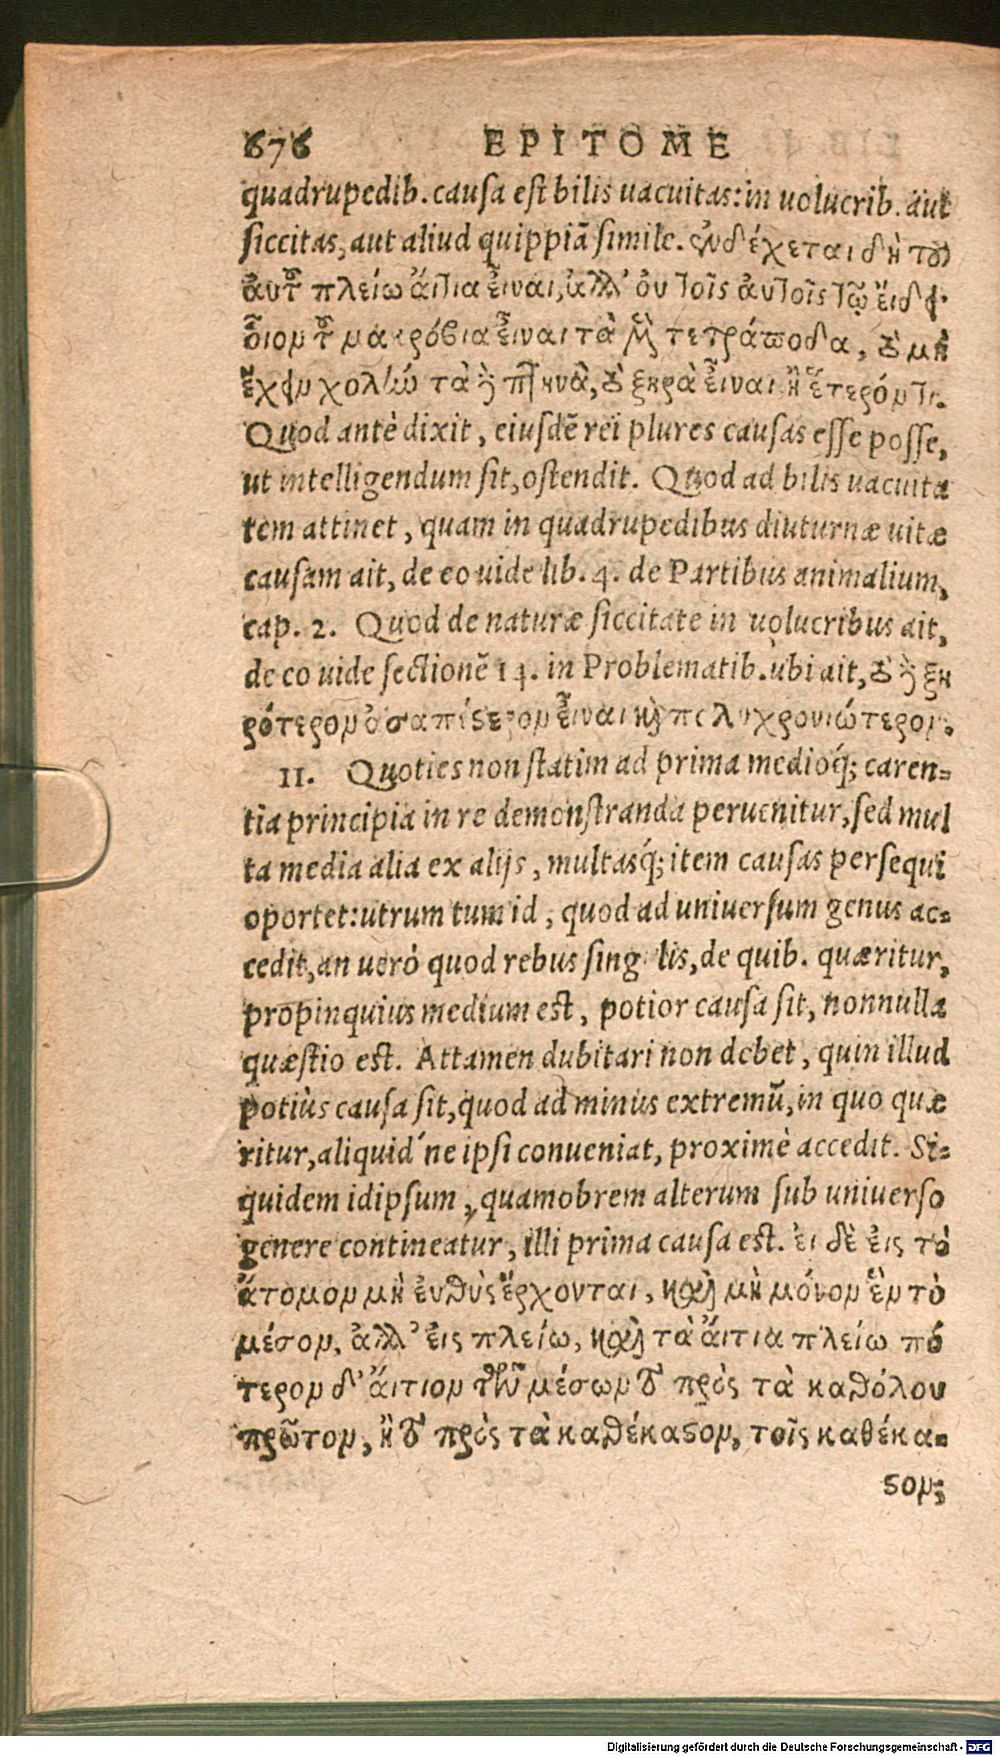 676 EPITOME
quadrupedib. causa est bilis uacuitas: in uolucrib. aut
siccitas, aut aliud quippiã simile. ἐνδέχεται δὴ τοῦ
ἀυτοῦ πλείω ἄιτια ἐἶναι, ἀλλ' ὀυ τοῖς ἀυτοῖς τῷ ἔιδει.
οἷον τοῦ μακρόβια ἐἶναι τὰ μὲν τετράποδα, τὸ μὴ
ἔχειν χολὴν τὰ δὲ πτηνὰ, τὸ ξηρὰ ἐἶναι ἢ ἕτερόν τι.
Quod antè dixit, eiusdẽ rei plures causas esse posse,
ut intelligendum sit, ostendit. Quod ad bilis uacuita
tem attinet, quam in quadrupedibus diuturnæ uitæ
causam ait, de eo uide lib. 4. de Partibus animalium,
cap. 2. Quod de naturæ siccitate in uolucribus ait,
de eo uide sectionẽ 14. in Problematib. ubi ait, τὸ δὲ ξη
ρότερον ἀσαπέστερον ἐἶναι καὶ πολυχρονιώτερον.
11. Quoties non statim ad prima medioq́; caren=
tia principia in re demonstranda peruenitur, sed mul
ta media alia ex alijs, multasq́; item causas persequi
oportet: utrum tum id, quod ad uniuersum genus ac=
cedit, an uerò quod rebus sing lis, de quib. quæritur,
propinquius medium est, potior causa sit, nonnulla
quæstio est. Attamen dubitari non debet, quin illud
potiùs causa sit, quod ad minus extremũ, in quo quæ
ritur, aliquid ́ne ipsi conueniat, proximè accedit. Si=
quidem id ipsum, quamobrem alterum sub uniuerso
genere contineatur, illi prima causa est. ἐι δὲ ἐις τὸ
ἄτομον μὴ ἐυθὺς ἔρχονται, καὶ μὴ μόνον ἓν τὸ
μέσον, ἀλλ' ἐις πλείω, καὶ τὰ ἄιτια πλείω πό
τερον δ' ἄιτιον τῶν μέσων τὸ πρὸς τὰ καθόλου
πρῶτον, ἢ τὸ πρὸς τὰ καθέκαστον, τοῖς καθέκα=
στον;
Digitalisierung gefördert durch die Deutsche Forschungsgemeinschaft - DFG